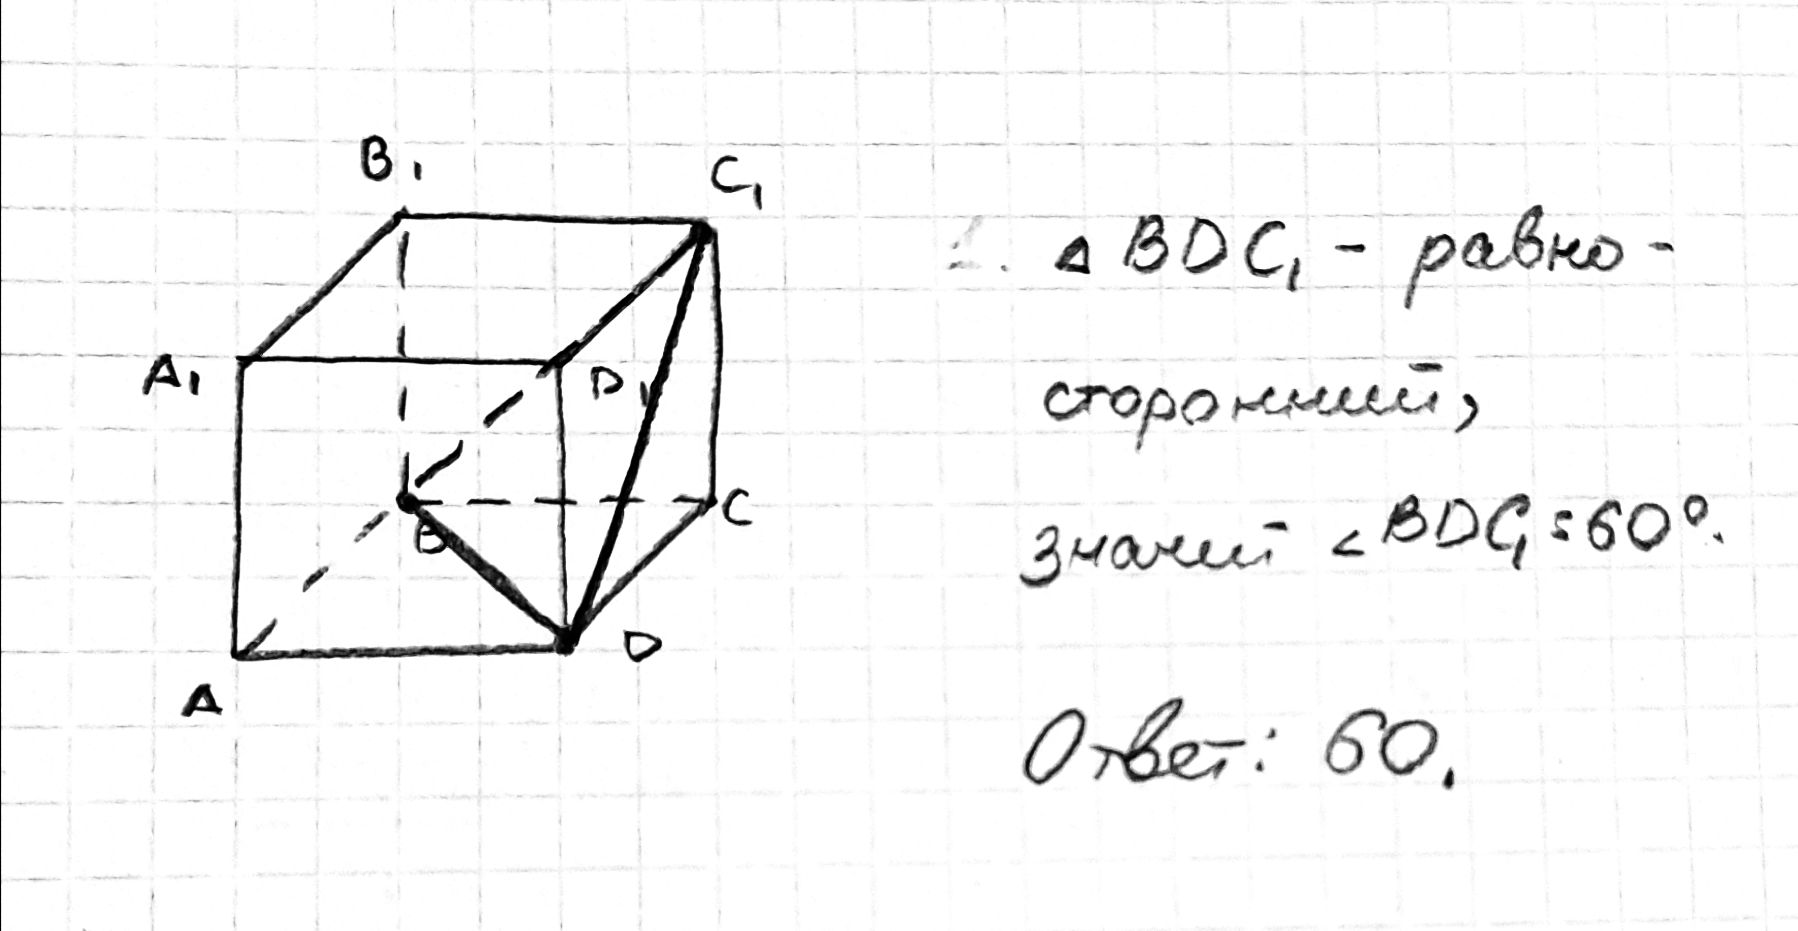 B₁
C₁
A₁
D₁
B
C
D
A
1. △BDC₁ - равно-
сторонний,
значит ∠BDC₁ = 60°.
Ответ: 60.